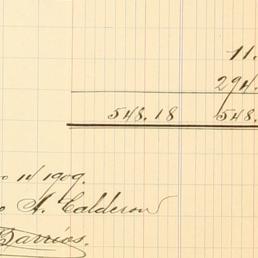 11.
294.
548.18 548.
o 14 1909.
o A. Calderon
Barrios.